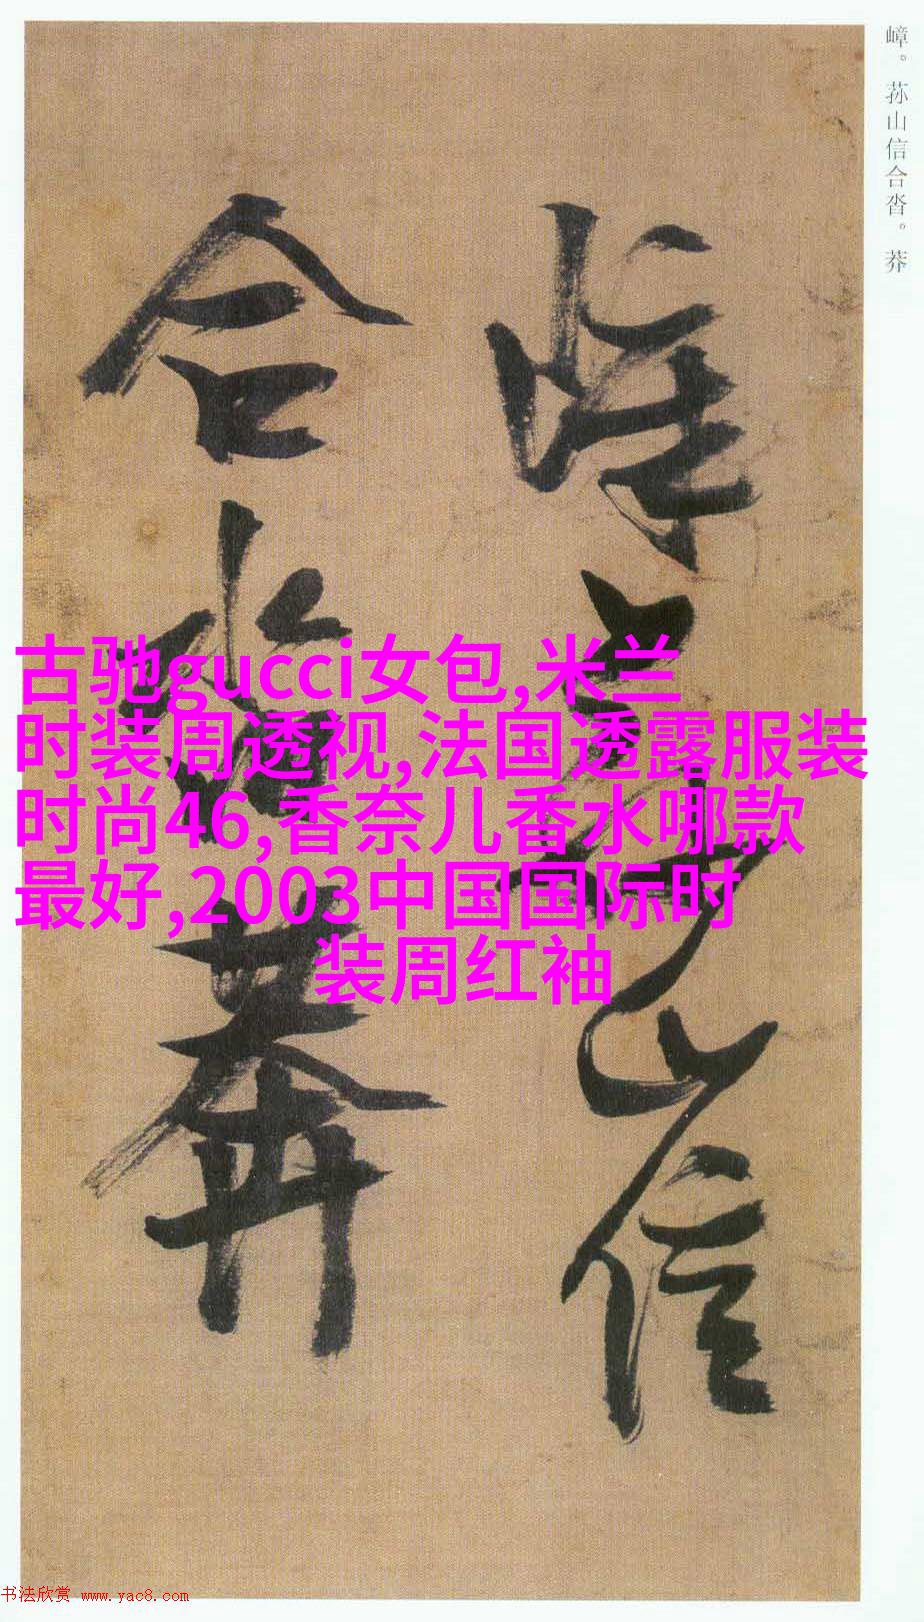 嶂。荪山信合沓。莽
嶂荪山信
合沓莽
古驰gucci女包,米兰
时装周透视,法国透露服装
时尚46,香奈儿香水哪款
最好,2003中国国际时
装周红袖
书法欣赏 www.yac8.com